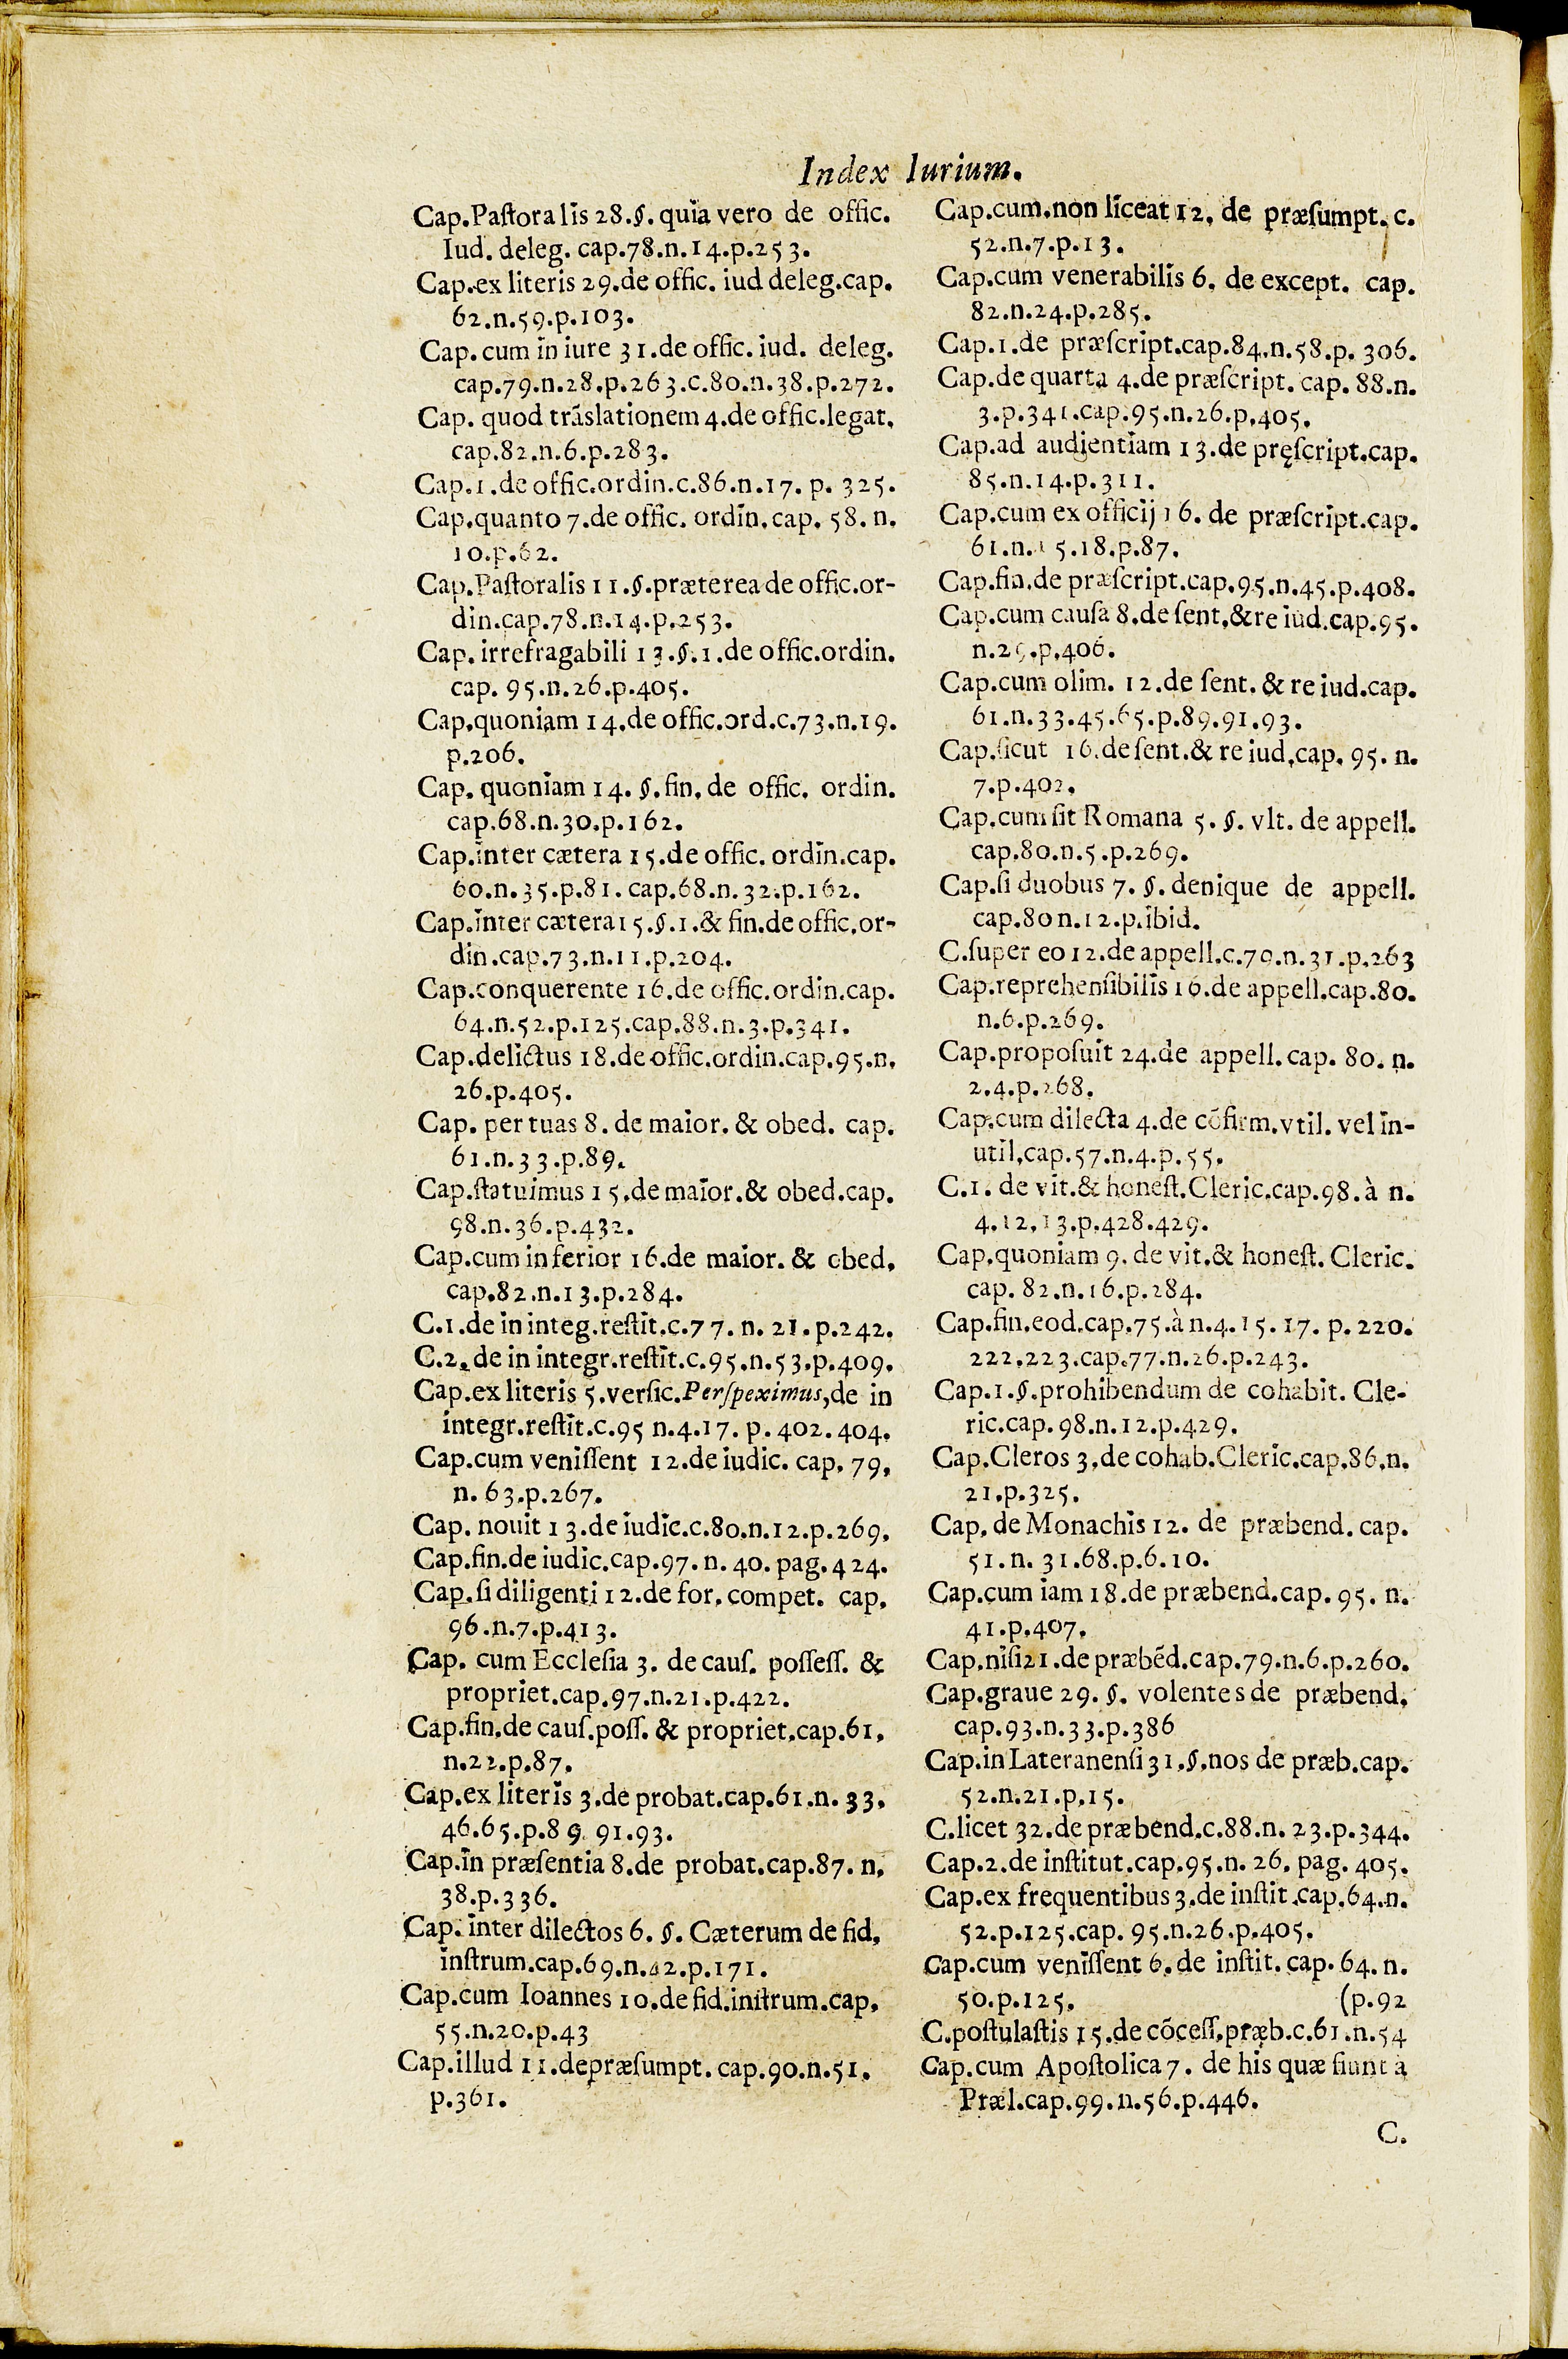 Index Iurium.
Cap.Paſtoralis 28.§. quia vero de offic.
Iud. deleg. cap.78.n.14.p.253.
Cap.ex literis 29.de offic. iud deleg.cap.
62.n.59.p.103.
Cap. cum in iure 31.de offic. iud. deleg.
cap.79.n.28.p.263.c.80.n.38.p.272.
Cap. quod trãslationem 4.de offic.legat.
cap.82.n.6.p.283.
Cap.1.de offic.ordin.c.86.n.17. p. 325.
Cap.quanto 7.de offic. ordin.cap. 58. n.
10.p.62.
Cap.Paſtoralis 11.§.præterea de offic.or-
din.cap.78.n.14.p.253.
Cap. irrefragabili 13.§.1.de offic.ordin.
cap. 95.n.26.p.405.
Cap.quoniam 14.de offic.ord.c.73.n.19.
p.206.
Cap. quoniam 14. §.fin. de offic. ordin.
cap.68.n.30.p.162.
Cap.inter cætera 15.de offic. ordin.cap.
60.n.35.p.81. cap.68.n.32.p.162.
Cap.inter cætera 15.§.1.& fin.de offic.or-
din.cap.73.n.11.p.204.
Cap.conquerente 16.de offic.ordin.cap.
64.n.52.p.125.cap.88.n.3.p.341.
Cap.delictus 18.de offic.ordin.cap.95.n.
26.p.405.
Cap. per tuas 8. de maior. & obed. cap.
61.n.33.p.89.
Cap.ſtatuimus 15.de maior.& obed.cap.
98.n.36.p.432.
Cap.cum inferior 16.de maior. & obed.
cap.82.n.13.p.284.
C.1.de in integ.reſtit.c.77. n. 21. p.242.
C.2. de in integr.reſtit.c.95.n.53.p.409.
Cap.ex literis 5.verſic.Perſpeximus,de in
integr.reſtit.c.95 n.4.17. p. 402. 404.
Cap.cum veniſſent 12.de iudic. cap. 79.
n. 63.p.267.
Cap. nouit 13.de iudic.c.80.n.12.p.269.
Cap.fin.de iudic.cap.97. n. 40. pag. 424.
Cap.ſi diligenti 12.de for. compet. cap.
96.n.7.p.413.
Cap. cum Eccleſia 3. de cauſ. poſſeſſ. &
propriet.cap.97.n.21.p.422.
Cap.fin.de cauſ.poſſ. & propriet.cap.61.
n.22.p.87.
Cap.ex literis 3.de probat.cap.61.n. 33.
46.65.p.89 91.93.
Cap.in præſentia 8.de probat.cap.87. n.
38.p.336.
Cap. inter dilectos 6. §. Cæterum de fid.
inſtrum.cap.69.n.42.p.171.
Cap.cum Ioannes 10.de fid.inſtrum.cap.
55.n.20.p.43
Cap.illud 11.depræſumpt. cap.90.n.51.
p.361.
Cap.cum.non liceat 12. de præſumpt. c.
52.n.7.p.13.
Cap.cum venerabilis 6. de except. cap.
82.n.24.p.285.
Cap.1.de præſcript.cap.84.n.58.p. 306.
Cap.de quarta 4.de præſcript. cap. 88.n.
3.p.341.cap.95.n.26.p.405.
Cap.ad audientiam 13.de pręſcript.cap.
85.n.14.p.311.
Cap.cum ex officij 16. de præſcript.cap.
61.n.15.18.p.87.
Cap.fin.de præſcript.cap.95.n.45.p.408.
Cap.cum cauſa 8.de ſent.&re iud.cap.95.
n.29.p.406.
Cap.cum olim. 12.de ſent. & re iud.cap.
61.n.33.45.65.p.89.91.93.
Cap.ſicut 16.de ſent.& re iud.cap. 95. n.
7.p.402.
Cap.cum ſit Romana 5. §. vlt. de appell.
cap.80.n.5.p.269.
Cap.ſi duobus 7. §. denique de appell.
cap.80 n.12.p.ibid.
C.ſuper eo 12.de appell.c.79.n.31.p.263
Cap.reprehenſibilis 16.de appell.cap.80.
n.6.p.269.
Cap.propoſuit 24.de appell. cap. 80. n.
2.4.p.268.
Cap.cum dilecta 4.de cõfirm.vtil. vel in-
util.cap.57.n.4.p.55.
C.1. de vit.& honeſt.Cleric.cap.98. à n.
4.12.13.p.428.429.
Cap.quoniam 9. de vit.& honeſt. Cleric.
cap. 82.n.16.p.284.
Cap.fin.eod.cap.75.à n.4.15. 17. p. 220.
222.223.cap.77.n.26.p.243.
Cap.1.§.prohibendum de cohabit. Cle-
ric.cap. 98.n.12.p.429.
Cap.Cleros 3.de cohab.Cleric.cap.86.n.
21.p.325.
Cap. de Monachis 12. de præbend. cap.
51.n. 31.68.p.6.10.
Cap.cum iam 18.de præbend.cap. 95. n.
41.p.407.
Cap.niſi21.de præbẽd.cap.79.n.6.p.260.
Cap.graue 29. §. volentes de præbend.
cap.93.n.33.p.386
Cap.in Lateranenſi 31.§.nos de præb.cap.
52.n.21.p.15.
C.licet 32.de præbend.c.88.n. 23.p.344.
Cap.2.de inſtitut.cap.95.n. 26. pag. 405.
Cap.ex frequentibus 3.de inſtit.cap.64.n.
52.p.125.cap. 95.n.26.p.405.
Cap.cum veniſſent 6. de inſtit. cap. 64. n.
50.p.125. (p.92
C.poſtulaſtis 15.de cõceſſ.pręb.c.61.n.54
Cap.cum Apoſtolica 7. de his quæ fiunt a
Præl.cap.99.n.56.p.446.
C.